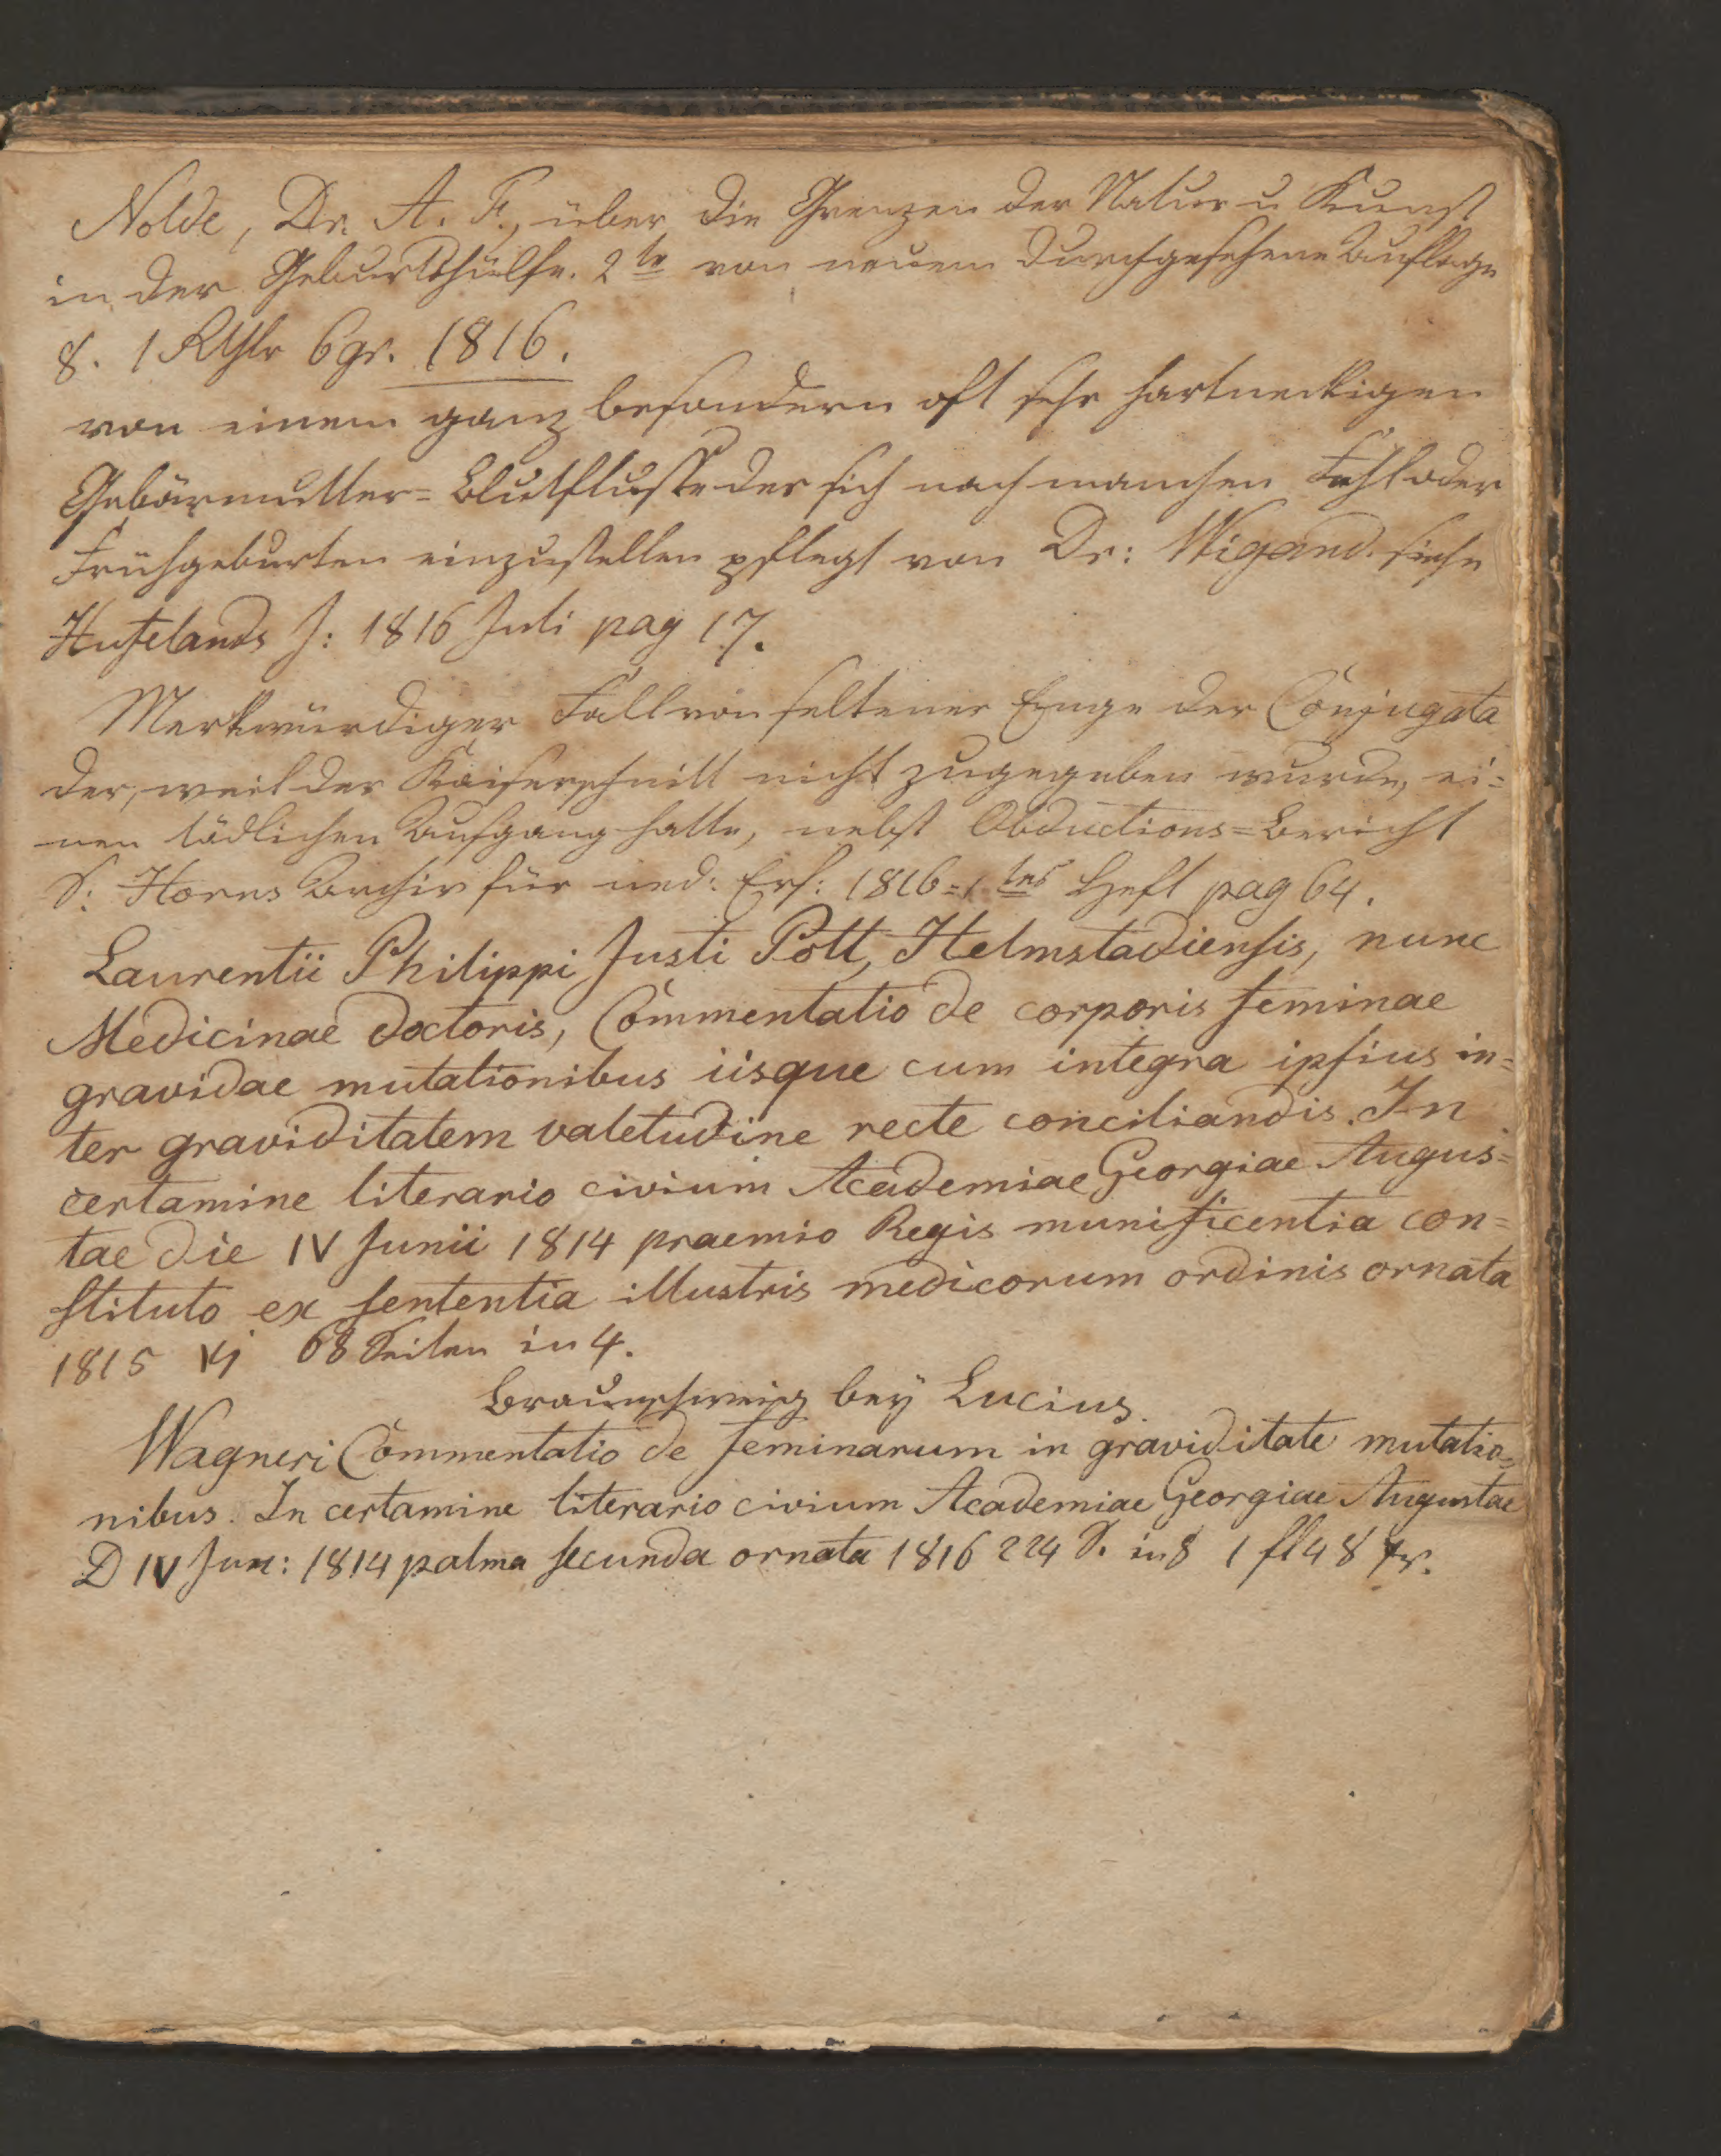 Nolde, Dr. A. F., über die Grenzen der Natur u Kunst
in der Geburtshülfe. 2te von neuem durchgesehene Auflage
8. 1 Rthlr 6 gr. 1816.
von einem ganz besondern oft sehr hartneckigen
Gebärmutter=Blutflusse der sich nach manchen Fehl oder
Frühgeburten einzustellen pflegt von Dr: Wigand. siehe
Hufelands J: 1816 Juli pag 17.
Merkwürdiger Fall von seltener Enge der Conjugata
der, weil der Kaiserschnitt nicht zugegeben wurde, ei=
nen tödlichen Ausgang hatte, nebst Obductions=Bericht
S: Horns Archiv für med: Erf: 1816 = 1tes Heft pag 64.
Laurentii Philippi Justi Pott, Helmstadiensis, nunc
Medicinae doctoris, Commentatio de corporis feminae
gravidae mutationibus iisque cum integra ipsius in=
ter graviditatem valetudine recte conciliandis. In
certamine literario civium Academiae Georgiae Augus=
tae die IV Junii 1814 praemio Regis munificentia con=
stituto ex sententia illustris medicorum ordinis ornata
1815 VI 68 Seiten in 4.
Braunschweig bey Lucius.
Wagneri Commentatio de feminarum in graviditate mutatio=
nibus. In certamine literario civium Academiae Georgiae Augustae
D IV Jun: 1814 palma secunda ornata 1816 224 S. in 8 1 fl 48 xr.